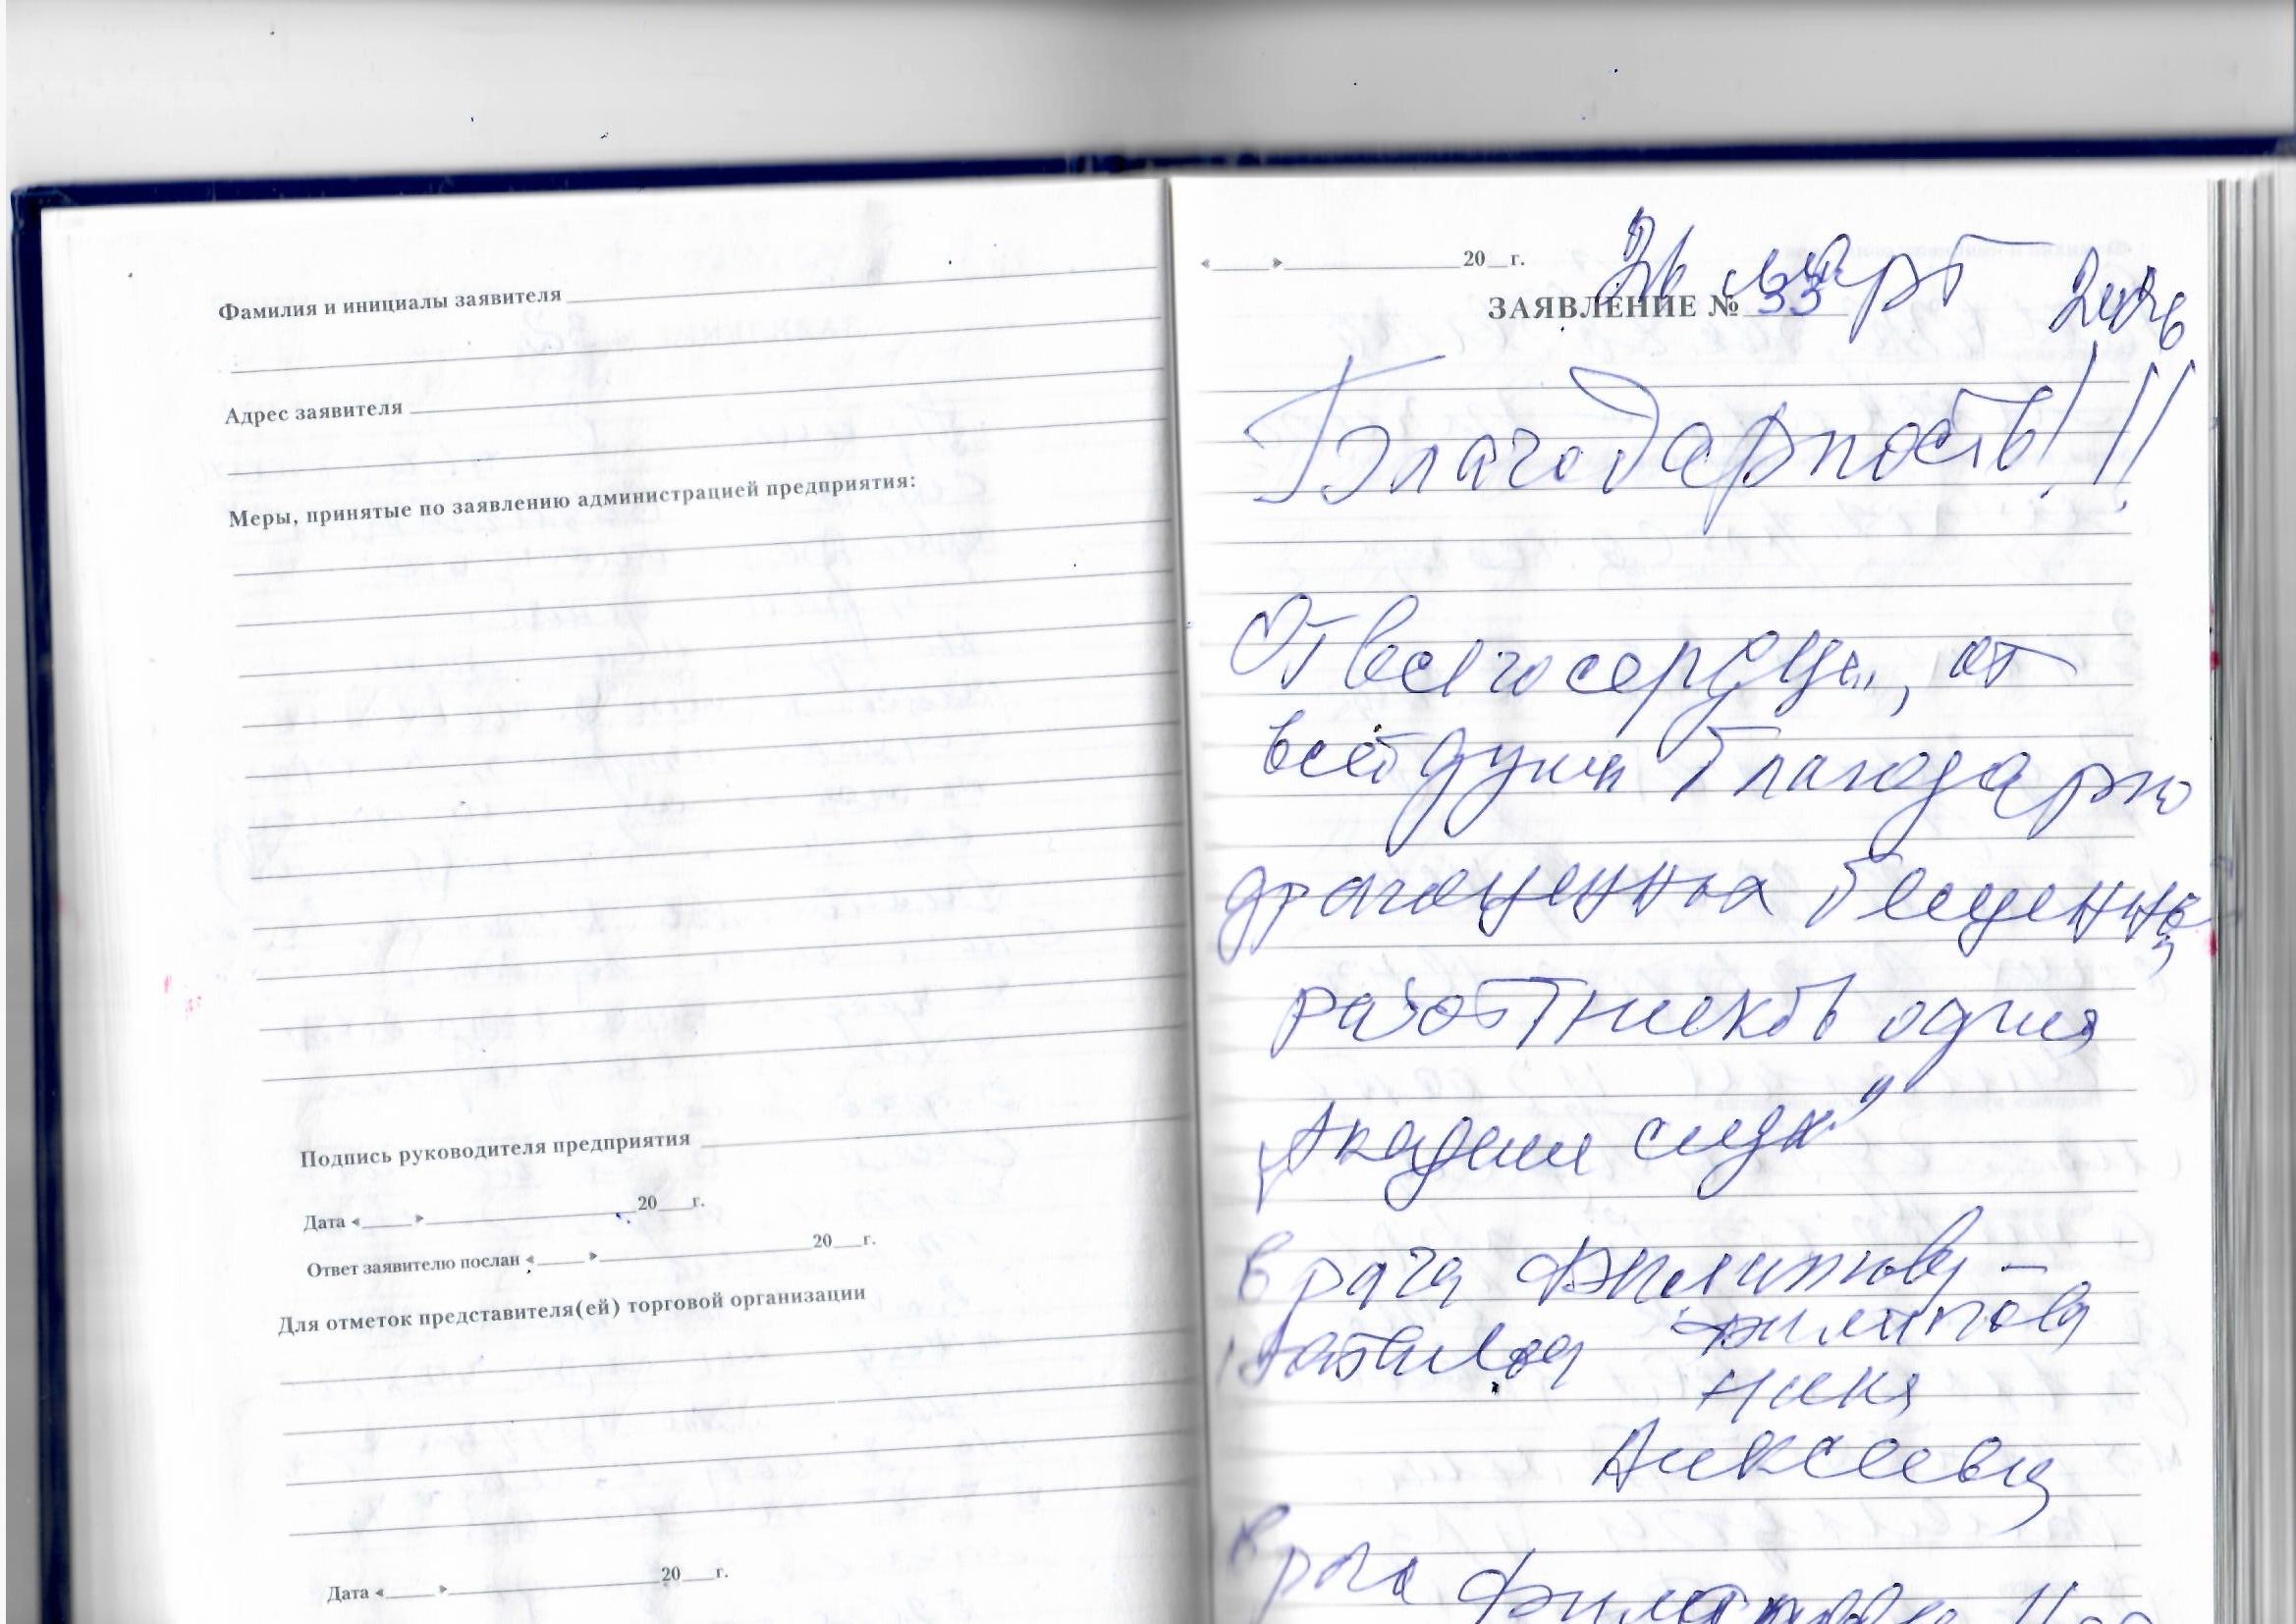 Фамилия и инициалы заявителя
Адрес заявителя
Меры, принятые по заявлению администрацией предприятия:
Подпись руководителя предприятия
Дата «____» ____ 20__г.
Ответ заявителю послан «____» ____ 20__г.
Для отметок представителя(ей) торговой организации
Дата «____» ____ 20__г.
«____» ____ 20__г. 26 март 2026
ЗАЯВЛЕНИЕ № 33
Благодарность!!!
От всего сердца, от
всей души благодарю
драгоценных бесценных
работников
Академии слуха"
врача Филиппову –
Филиппову
Нина
Алексеевну
врача